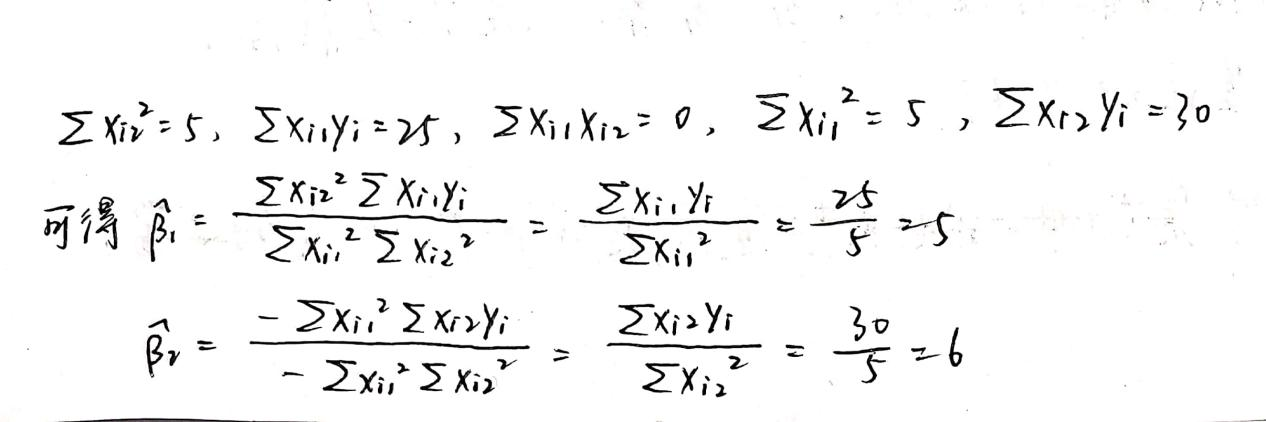 ∑xᵢ₂²=5, ∑xᵢ₁yᵢ=25, ∑xᵢ₁xᵢ₂=0, ∑xᵢ₁²=5, ∑xᵢ₂yᵢ=30
可得 β̂₁ = (∑xᵢ₂²∑xᵢ₁yᵢ)/(∑xᵢ₁²∑xᵢ₂²) = (∑xᵢ₁yᵢ)/(∑xᵢ₁²) = 25/5 = 5
β̂₂ = (-∑xᵢ₁²∑xᵢ₂yᵢ)/(-∑xᵢ₁²∑xᵢ₂²) = (∑xᵢ₂yᵢ)/(∑xᵢ₂²) = 30/5 = 6